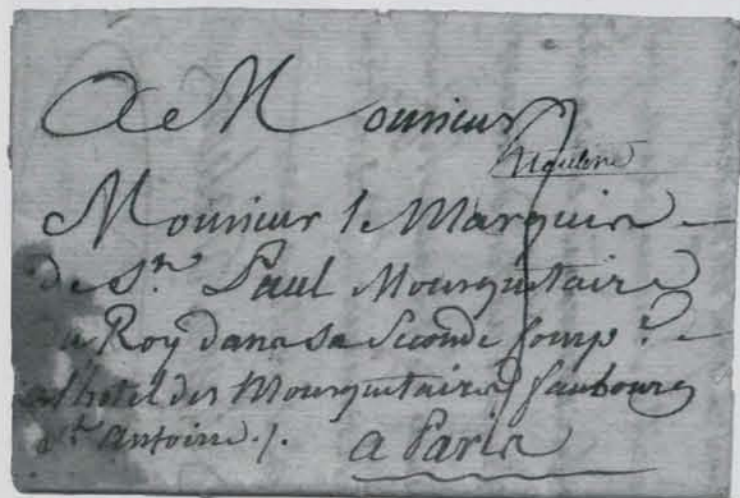 A Monsieur
Monsieur le Marquis
de St. Paul Mousquetaire
du Roy dans sa Seconde Comp.e
a l'hotel des Mousquetaires faubourg
St. Antoine ./.
a Paris